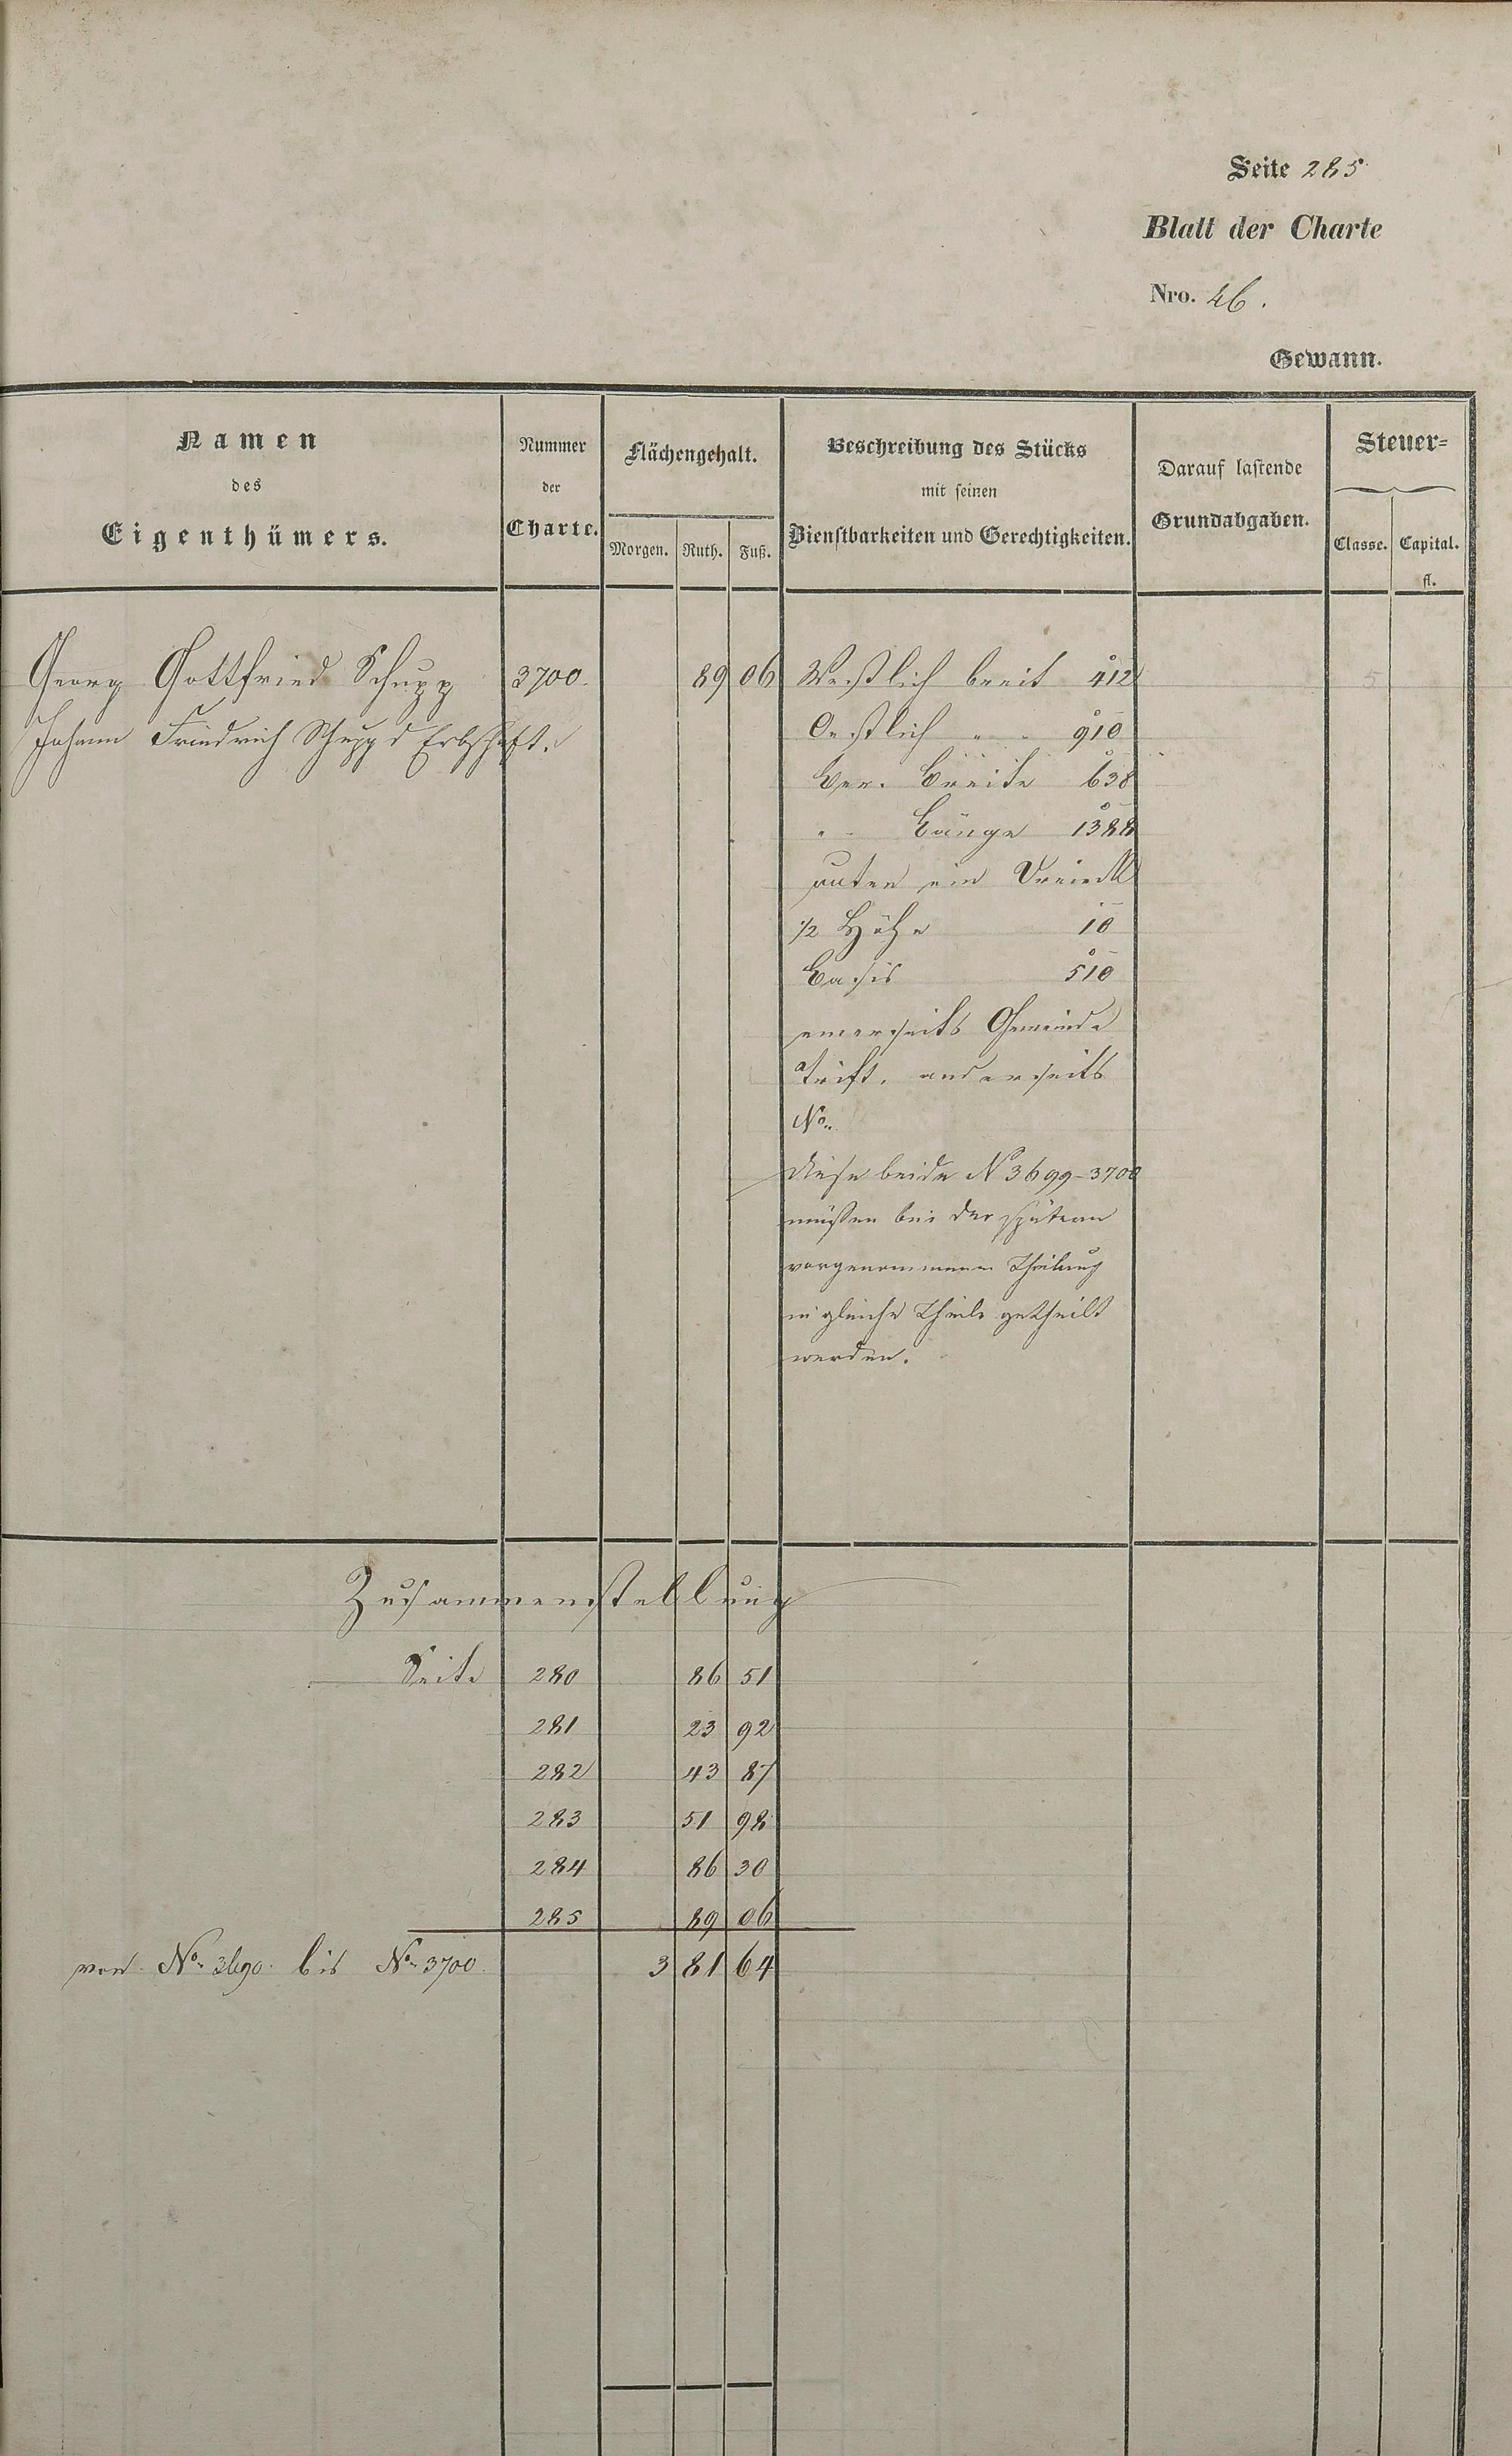 Seite 285
Blatt der Charte
Nro. 26.
Gewann.
Namen des Eigenthümers.
Nummer der Charte.
Flächengehalt.
Morgen. Ruth. Fuß.
Beschreibung des Stücks mit seinen Dienstbarkeiten und Gerechtigkeiten.
Darauf lastende Grundabgaben.
Steuer-
Classe. Capital. fl.
Georg Gottfried Schupp 3700. 89 06 Westlich breit 412
Johann Friedrich Schupps Erbschaft. Oestlich " " 910
Ver. Breite 638
" Länge 1388
unten ein Dreieck
1/2 Höhe 10
Basis 510
einerseits Gemeinde
Trift, anderseits
No.
Diese beide No 3699-3700
müssen bei der spätern
vorgenommenen Theilung
in gleiche Theile getheilt
werden.
Zusammenstellung
Seite 280 86 51
281 23 92
282 43 87
283 51 98
284 86 30
285 89 06
von No. 3690. bis No. 3700. 3 81 64